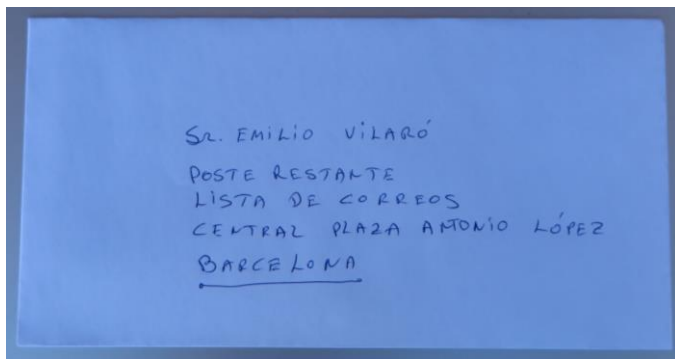 SR. EMILIO VILARÓ
POSTE RESTANTE
LISTA DE CORREOS
CENTRAL PLAZA ANTONIO LÓPEZ
BARCELONA